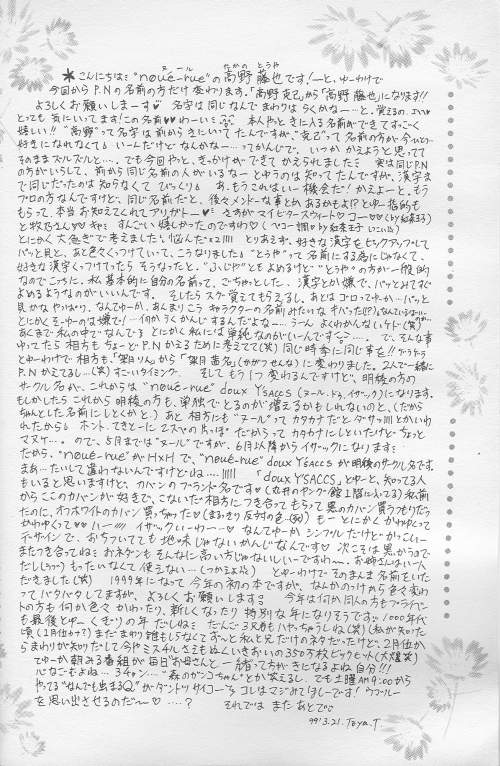 ヌール たかの とうや
＊こんにちは！"noué-rue"の高野 藤也です！ーと、ゆーわけで
今回からP.Nの名前の方だけ変わります。「高野克己」から「高野藤也」になります!!
よろしくお願いしまーす♡ 名字は同じなんでまわりはらくかなー…と。覚えるの。
とっても気にいってます！この名前♥♥わーい 本人やっときに入る名前ができてすっごく
嬉しい!! "高野"って名字は前からきにいってたんですが、"克己"って名前の方が今ひとつ
好きになれなくて いーんだけどなんかなー…ってかんじで。いつか かえようと思ってて
そのままズルズルと…。でも今回やと、きっかけができてかえられました 実は同じP.N
の方がいらして、前から同じ名前の人がいるなーとゆうのは知ってたんですが、漢字ま
で同じだったのは知らなくてびっくり あ、もうこれはいー機会だ！かえよーと。もう
プロの方なんですけど、同じ名前だと、後々メンドーな事とかあるかもよ!?とゆー指摘も
もらって。本当お知えてくれてアリガトー♥ さすがマイ シスタースウィート♡コー
と牧乃さん♥ すんごい嬉しかったのですわ♡
とにかく大急ぎで考えました 悩んだ とりあえず、好きな漢字をピックアップして
パッと見と、あと色々くっつけていって、こうなりました "とうや"って名前にする気はじゃなくて、
好きな漢字くっつけてたらそうなったと。"ふじや"ともよめるけど"とうや"の方が一般的
なのでこっちに。私 基本的に自分の名前って、ごちゃっとした、漢字とか嫌で。パッとみてすぐ
よめるようなのがいいんです。 そしたらスグ覚えてもらえるし。あとはゴロってゆーか…パッと
見かなやっぱり。なんてゆーか、あんまりこうキャラクターの名前みたいな
とにかくそーゆーのは嫌で！…何かうくかんじするんだよなー…うーん よくわかんないケド(笑)
あくまで私の中で なんで とにかく私には単純なのがいいんです …。で、そんな事
ゆってたら相方もちょーどP.Nかえるために考えてて(笑)同じ時季に同じ事を!!
とゆーわけで相方も、「架月りん」から「架月
P.Nかえてるし…(笑)すごいタイミング。 そしてもう1つ変わるんですけど、明稜の方の
サークル名が、これからは"noué-rue" doux Y'SACCS (ヌール・ドゥ・イザック)になります。
もしかしたら これから明稜の方も、単独でとるのが増えるかもしれないのと、(だから
ちゃんとした名前にしとくかと) あと相方にも"ヌール"ってカタカナだと
れたから ホント、てきとーに2人の 出っぽ だからってカタカナにしといたけどーちょっと
マヌケ…。ので、5月までは"ヌール"ですが、6月以降からイザックになります
だから、"noué-rue"がH×Hで、"noué-rue" doux Y'SACCSが明稜のサークル名です。
まあ…たいして違わないんですけどね… 「doux Y'SACCS」とゆーと、知ってる人
もいると思いますけど、カバンのブランド名です♥
からここのカバンが好きで、こないだ相方につき合ってもらって黒のカバン買うつもりだっ
たのに、オフホワイトのカバン買っちゃった♡(まるっきり反対の色…(笑)) もーとにかくかわゆくって
かわゆくって♡♡ハー イザックいーわー♡ なんてゆーかシンプルだけどかっこいー
デザインで、おちついてても地味じゃないかんじなんです♡ 次こそは黒かうので
またつき合ってね おネダンもそんなに高い方じゃないしいーですわー。お姉さんは一人
だし(笑) もったいなくて使えない…(つかえよ) とゆーわけでそのまんま名前をいた
だきました(笑) 1999年になって今年の初の本ですが、なんかのっけから色々変わ
ってバタバタしてますが、よろしくお願いします 今年は何か同人の方もプライベー
トの方も何か色々かわったり、新しくなったり特別な年になりそうです 1000年代
も最後とゆー くぎりの年だしねぇ だんご3兄弟もハヤっちゃうしね(笑) (私が知った
頃(2月位か?)まだまわり誰もしらなくてずーっと私と兄だけのネタだったけど、2月位か
らまわりが知りだして今やミスチルさえもぬくいきおいの350万枚ビックヒット(大爆笑)
てゆーか朝みる番組が毎日"お母さんと一緒"って方がきになるよね自分!!!
心なごもよね… 3チャン… "森のガンコちゃん"とか笑えるし。でも土曜AM9:00から
やってる"なんでも出まるQ"がダントツサイコーっ コレはマジみてほしーです！ウゴウゴルーガ
を思い出させるのだー♡ …？ それでは またあとで
99! 3. 21. Toya.T